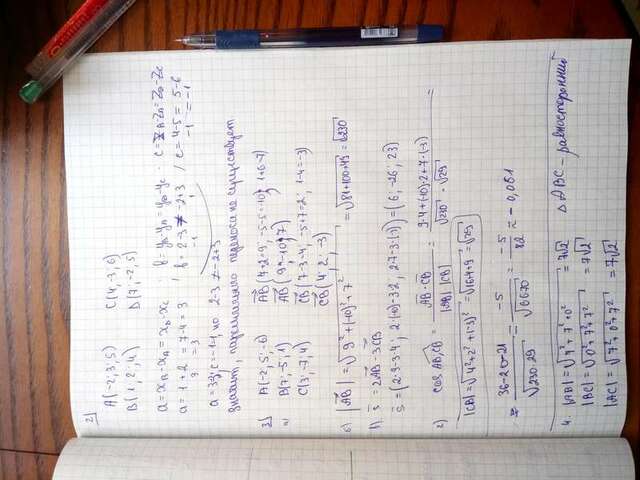 2)
A(-2; 3; 5) C(4; 3; 6)
B(1; 2; 4) D(7; -2; 5)
a = x_B - x_A = x_D - x_C ; b = y_B - y_A = y_D - y_C ; c = z_B - z_A = z_D - z_C
a = 1+2 = 7-4 = 3 / b = 2-3 ≠ -2+3 / c = 4-5 = 5-6
3 = 3 -1 -1 = -1
a = 3; c = -1, но 2-3 ≠ -2+3
Значит, параллельного переноса не существует
3) A(-2; 5; -6) AB(4+2=9; -5-5=-10; 1+6=7)
B(7; -5; 1) AB(9; -10; 7)
C(3; -7; 4) CB(7-3=4; -5+7=2; 1-4=-3)
CB(4; 2; -3)
б) |AB| = √9²+(-10)²+7² = √81+100+49 = √230
в) s = 2AB - 3CB
s = (2·9-3·4; 2·(-10)-3·2; 2·7-3·(-3)) = (6; -26; 23)
г) cos AB,CB = AB·CB / |AB| |CB| = 9·4+(-10)·2+7·(-3) / √230 · √29 =
|CB| = √4²+2²+(-3)² = √16+4+9 = √29
= 36-20-21 / √230·29 = -5 / √6670 = -5 / 82 ≈ -0,061
4. |AB| = √7²+7²+0² = 7√2
|BC| = √0²+7²+7² = 7√2 △ABC - равносторонний
|AC| = √7²+0²+7² = 7√2